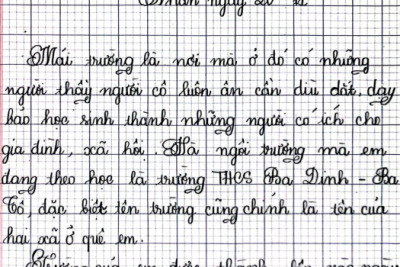 Mái trường là nơi mà ở đó có những
người thầy người cô luôn ân cần dìu dắt, dạy
bảo học sinh thành những người có ích cho
gia đình, xã hội. Mà ngôi trường mà em
đang theo học là trường THCS Ba Dinh - Ba
Tô, đặc biệt tên trường cũng chính là tên của
hai xã ở quê em.